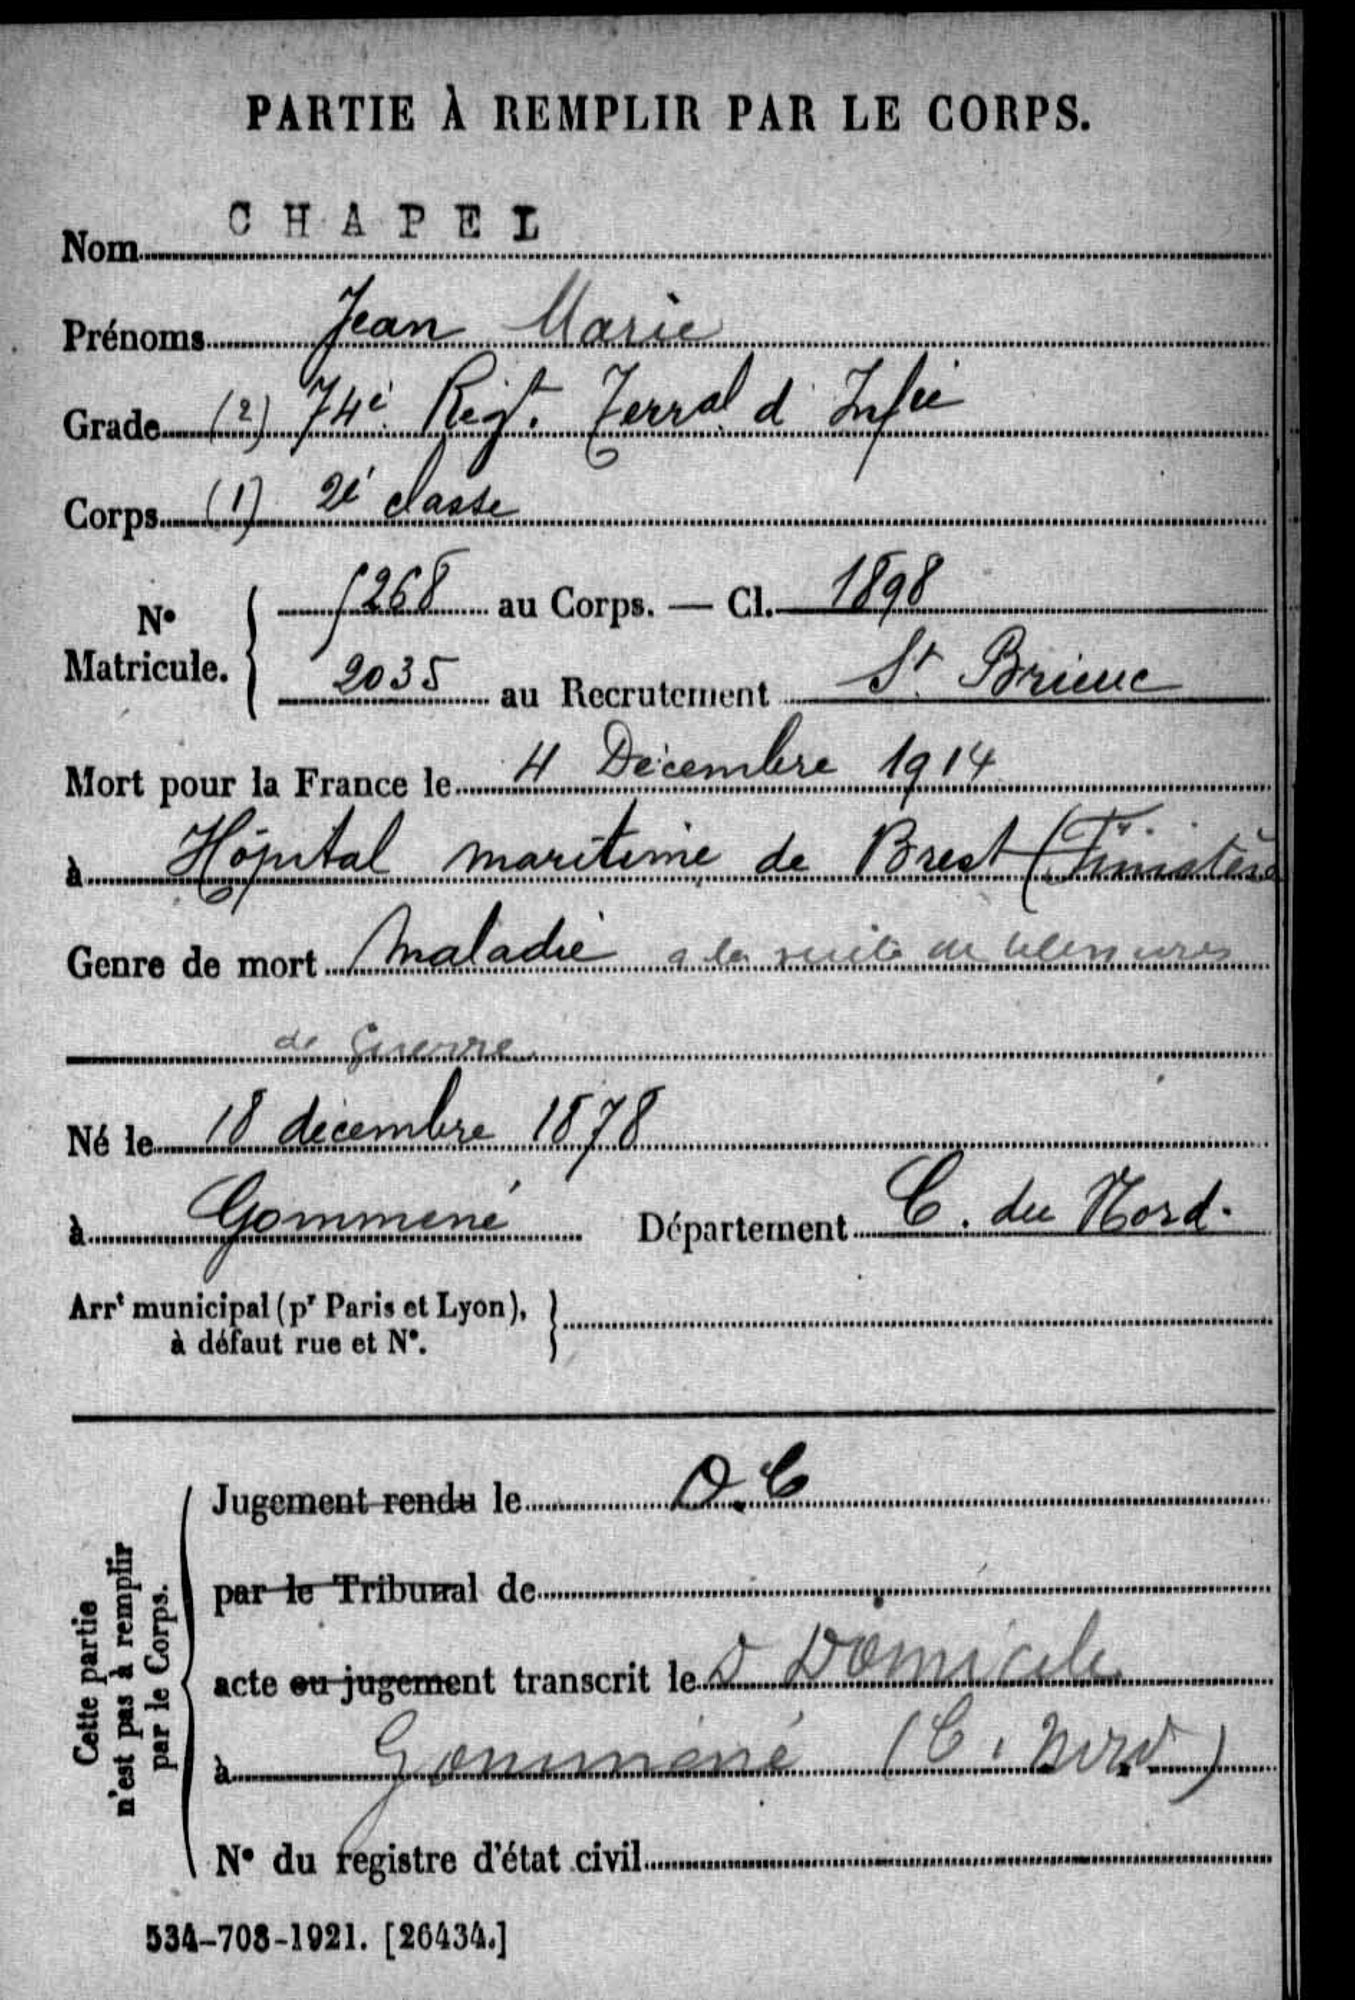 PARTIE À REMPLIR PAR LE CORPS.
Nom CHAPEL
Prénoms Jean Marie
Grade (2) 74è Régt. Terral d'Infie
Corps (1) 2è classe
N° Matricule. 268 au Corps. — Cl. 1898
2035 au Recrutement St Brieuc
Mort pour la France le 4 Décembre 1914
à Hôpital maritime de Brest (Finistère
Genre de mort Maladie a la suite de blessures
de Guerre
Né le 18 décembre 1878
à Gommené Département C. du Nord.
Arrt municipal (pr Paris et Lyon),
à défaut rue et N°.
Cette partie
n'est pas à remplir
par le Corps.
Jugement rendu le D.C
par le Tribunal de
acte ou jugement transcrit le D Domicile
à Gommené (C. Nord)
N° du registre d'état civil
534-708-1921. [26434.]